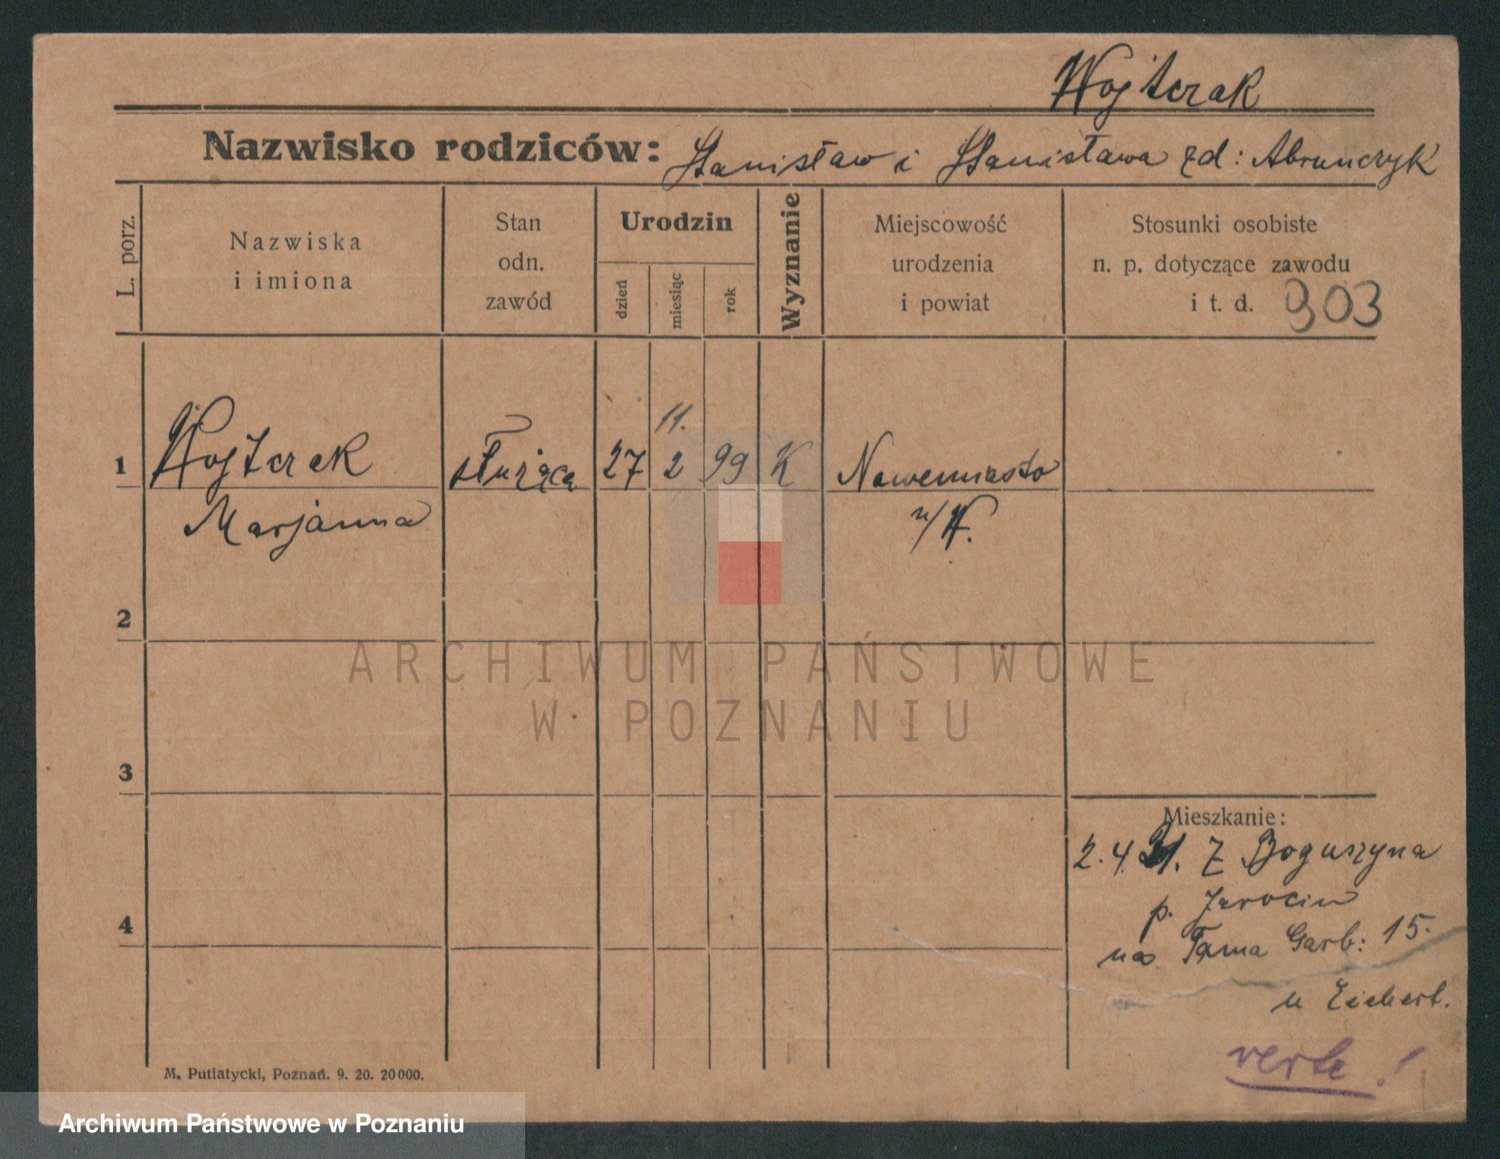 Wojtczak
Nazwisko rodziców: Stanisław i Stanisława zd: Abramczyk
L. porz.
Nazwiska
i imiona
Stan
odn.
zawód
Urodzin
dzień
miesiąc
rok
Wyznanie
Miejscowość
urodzenia
i powiat
Stosunki osobiste
n. p. dotyczące zawodu
i t. d. 903
11.
1 Wojtczak służąca 27 2 99 K Nowemiasto
Marjanna n/W.
2
ARCHIWUM PAŃSTWOWE
W POZNANIU
3
Mieszkanie:
2.4.31. Z Boguszyna
p. Jarocin
4
na Tama Garb: 15.
u Eichert.
verte!
M. Putiatycki, Poznań. 9. 20. 20000.
Archiwum Państwowe w Poznaniu